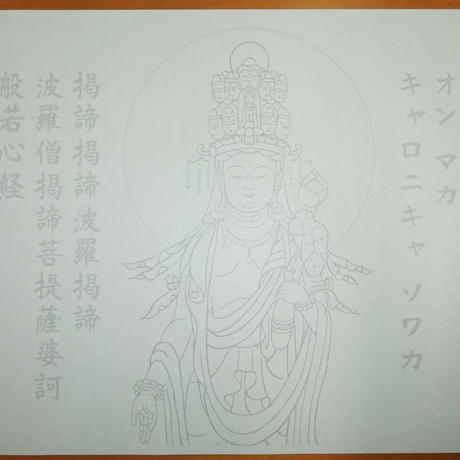 オン マカ
キャロニキャ ソワカ
掲諦掲諦波羅掲諦
波羅僧掲諦菩提薩婆訶
般若心経